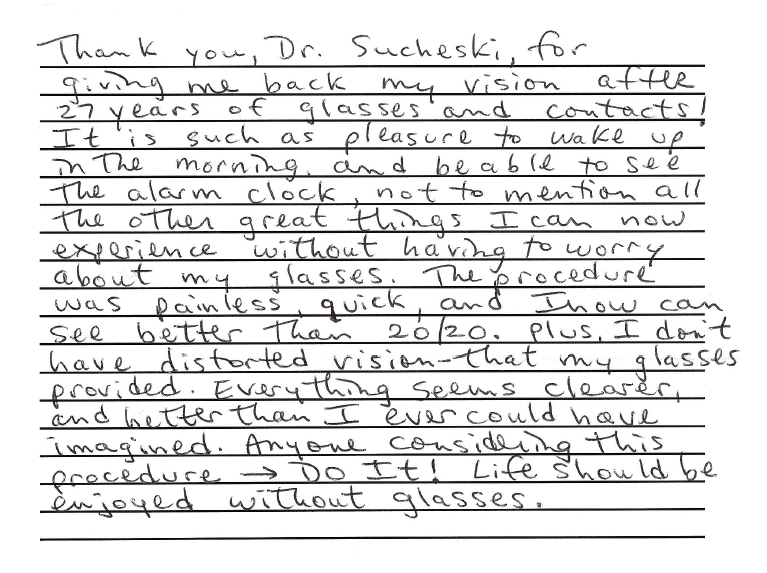 Thank you, Dr. Sucheski, for
giving me back my vision after
27 years of glasses and contacts!
It is such as pleasure to wake up
in the morning, and be able to see
the alarm clock, not to mention all
the other great things I can now
experience without having to worry
about my glasses. The procedure
was painless, quick, and I now can
see better than 20/20. Plus, I don't
have distorted vision-that my glasses
provided. Everything seems clearer,
and better than I ever could have
imagined. Anyone considering this
procedure → DO It! Life should be
enjoyed without glasses.